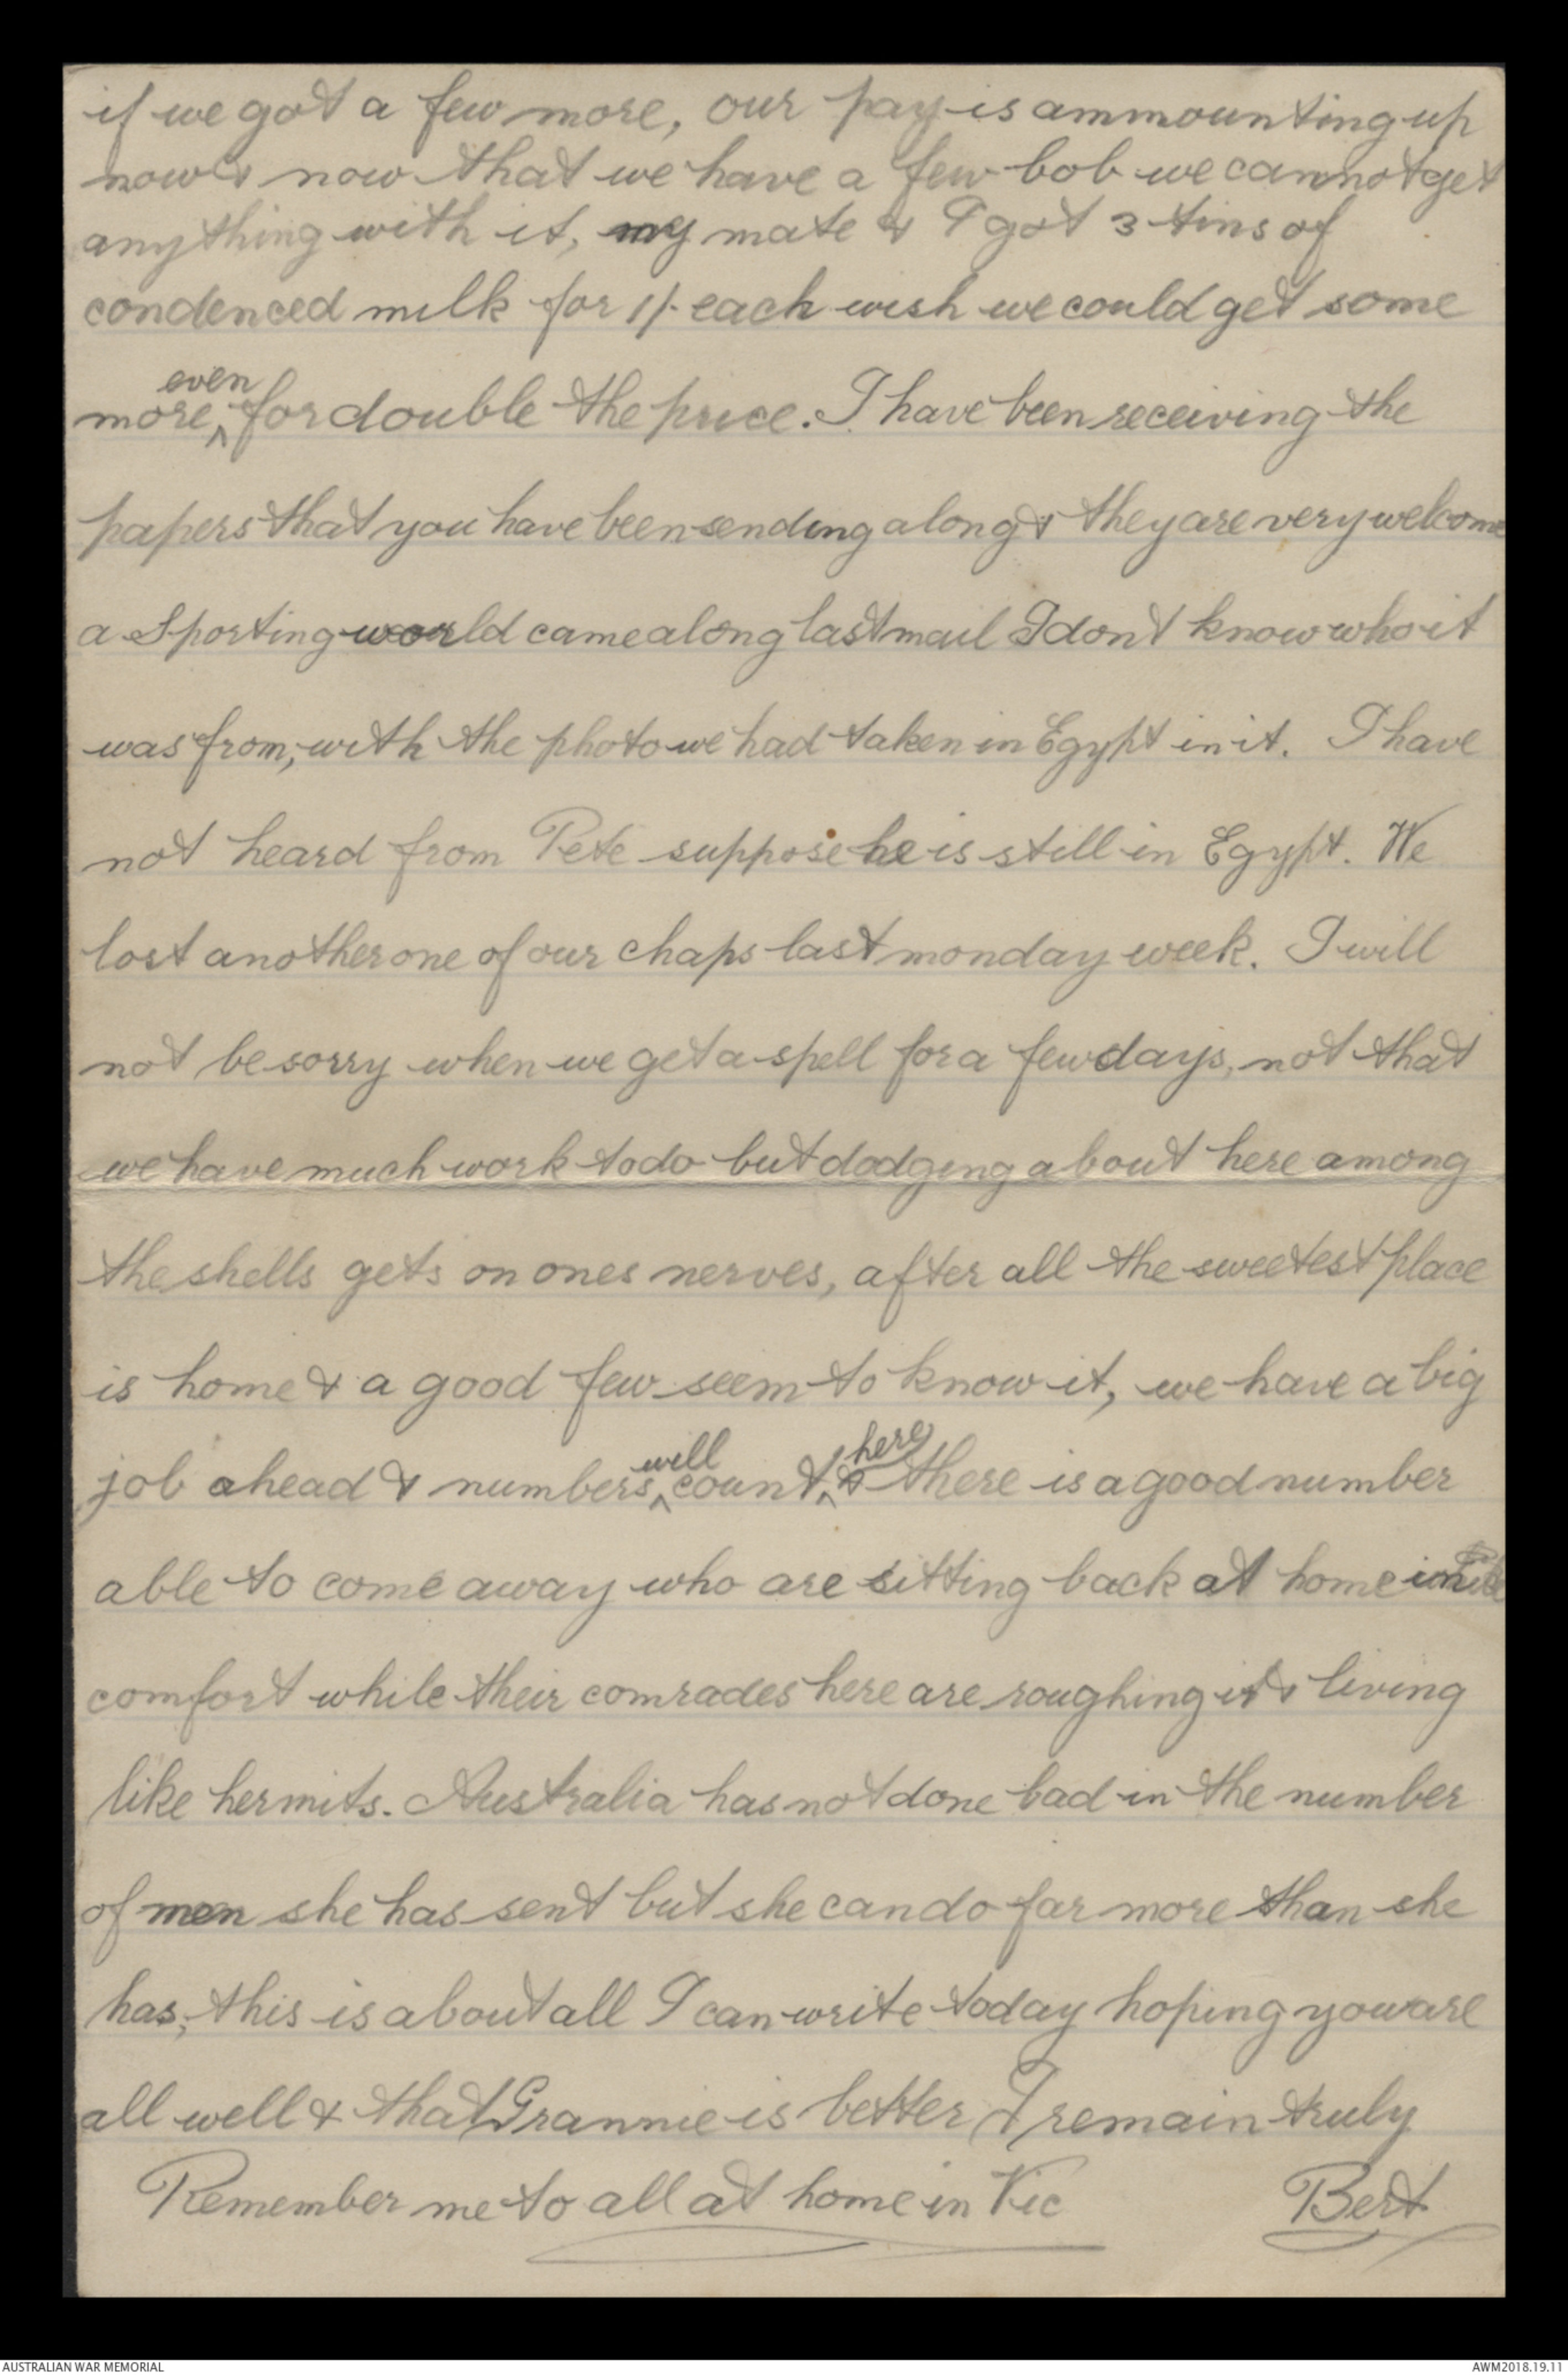 if we got a few more, our pay is ammounting up
now & now that we have a few bob we cannot get
anything with it, my mate & I got 3 tins of
condenced milk for 1/- each wish we could get some
more, even for double the price. I have been receiving the
papers that you have been sending along & they are very welcome
a Sporting world came along last mail I dont know who it
was from, with the photo we had taken in Egypt in it. I have
not heard from Pete suppose he is still in Egypt. We
lost another one of our chaps last monday week. I will
not be sorry when we get a spell for a few days, not that
we have much work to do but dodging about here among
the shells gets on ones nerves, after all the sweetest place
is home & a good few seem to know it, we have a big
job ahead & numbers will count here & there is a good number
able to come away who are sitting back at home in
comfort while their comrades here are roughing it & living
like hermits. Australia has not done bad in the number
of men she has sent but she can do far more than she
has, this is about all I can write today hoping you are
all well & that Grannie is better I remain truly
Remember me to all at home in Vic Bert
AUSTRALIAN WAR MEMORIAL AWM2018.19.11